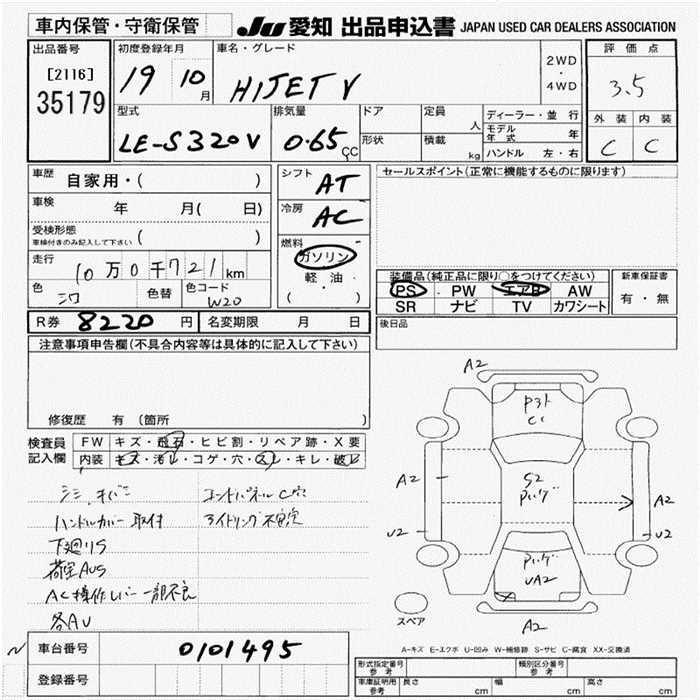 車内保管・守衛保管 JU 愛知 出品申込書 JAPAN USED CAR DEALERS ASSOCIATION
出品番号 初度登録年月 車名・グレード 2WD・4WD 評価点
[2116] 35179 19 10月 HIJET V 3.5
型式 排気量 ドア 定員 人 ディーラー・並行 外装 内装
LE-S320V 0.65 CC 形状 積載 kg モデル年式 年 C C
ハンドル 左・右
車歴 自家用・( ) シフト AT セールスポイント(正常に機能するものに限ります)
車検 年 月( 日) 冷房 AC
受検形態 車検付きのみ記入して下さい ( )
燃料 ガソリン・軽油 ( ・ )
走行 10万0千721km
色 シロ 色替 色コード W20
装備品(純正品に限り○をつけてください) 新車保証書
PS PW エアB AW 有・無
SR ナビ TV カワシート
R券 8220円 名変期限 月 日 後日品
注意事項申告欄(不具合内容等は具体的に記入して下さい)
修復歴 有(箇所 )
検査員記入欄 FW キズ・飛石・ヒビ割・リペア跡・X要
内装 キズ・汚レ・コゲ・穴・スレ・キレ・破レ
ハンドルカバー取付 アイドリング不安定
下廻りS
荷室AUS
AC操作レバー一部不良
各AU
A2
A2
U2
S2
A2
U2
UA2
A2
スペア
A-キズ E-エクボ U-凹み W-補修跡 S-サビ C-腐食 XX-交換済
車台番号 0101495
登録番号
形式指定番号 参考 類別区分番号 参考
車庫証明用 参考 長さ cm 幅 cm 高さ cm